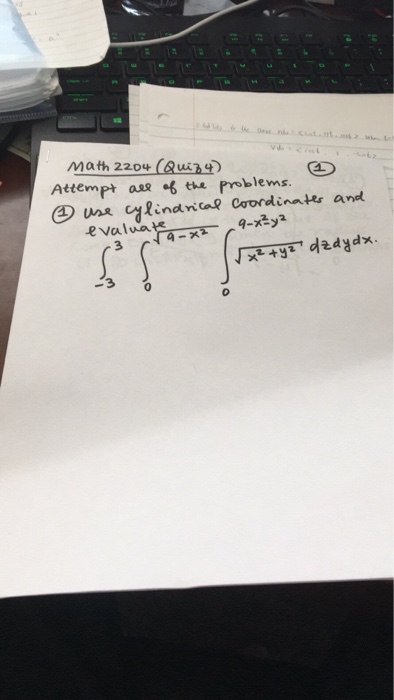 Math 2204 (Quiz 4) ①
Attempt all of the problems.
① use cylindrical coordinates and
evaluate
∫_{-3}^{3} ∫_{0}^{√(9-x²)} ∫_{0}^{9-x²-y²} √(x²+y²) dzdydx.